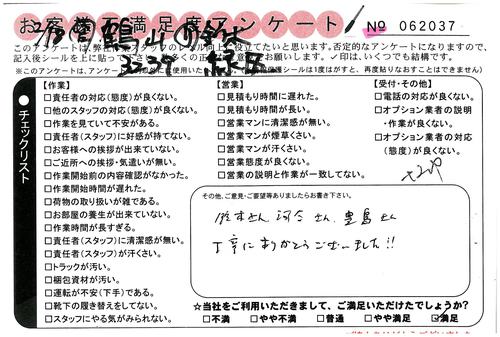 お客様不満足度アンケート
No 062037
このアンケートは、弊社
記入後シールを上に貼っ
お願いします。✓印は、いくつでも結構です。
【作業】
□責任者の対応(態度)が良くない。
□他のスタッフの対応(態度)が良くない。
□作業を見ていて不安がある。
□責任者(スタッフ)に好感が持てない。
□お客様への挨拶が出来ていない。
□ご近所への挨拶・気遣いが無い。
□作業開始前の内容確認がなかった。
□作業開始時間が遅れた。
□荷物の取り扱いが雑である。
□お部屋の養生が出来ていない。
□作業時間が長すぎる。
□責任者(スタッフ)に清潔感が無い。
□責任者(スタッフ)が汗くさい。
□トラックが汚い。
□梱包資材が汚い。
□運転が不安(下手)である。
□靴下の履き替えをしてない。
□スタッフにやる気がみられない。
【営業】
□見積もり時間に遅れた。
□見積もり時間が長い。
□営業マンに清潔感が無い。
□営業マンが煙草くさい。
□営業マンが汗くさい。
□営業態度が良くない。
□営業の説明と作業が一致してない。
【受付・その他】
□電話の対応が良くない。
□オプション業者の説明
・作業が良くない。
□オプション業者の対応
(態度)が良くない。
チェックリスト
その他、ご意見・ご要望等ありましたらお書き下さい。
鈴木さん 河合さん 豊島さん
丁寧にありがとうございました!!
☆当社をご利用いただきまして、ご満足いただけたでしょうか?
□不満 □やや不満 □普通 □やや満足 ☑満足